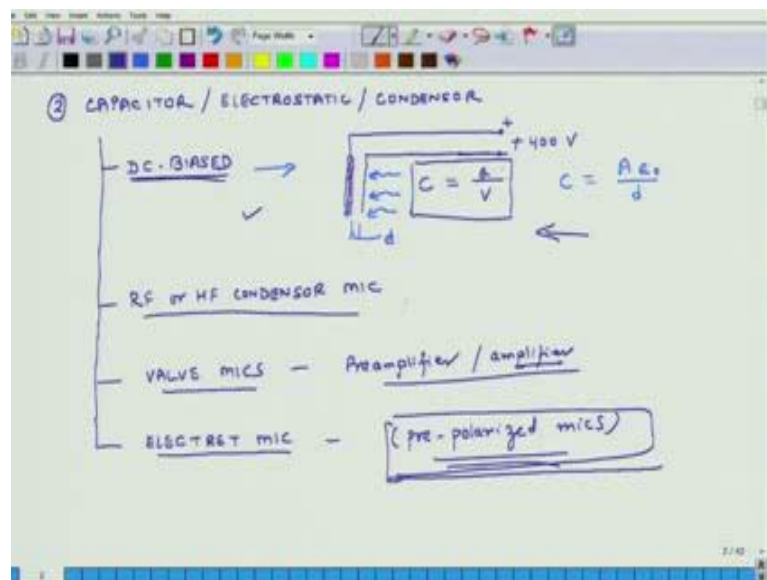 Edit View Insert Actions Tools Help
Page Width
② CAPACITOR / ELECTROSTATIC / CONDENSOR
DC. BIASED
+
+ 400 V
C = Q / V
C = A ε₀ / d
d
RF or HF CONDENSOR MIC
VALVE MICS – Preamplifier / amplifier
ELECTRET MIC – (pre-polarized mics)